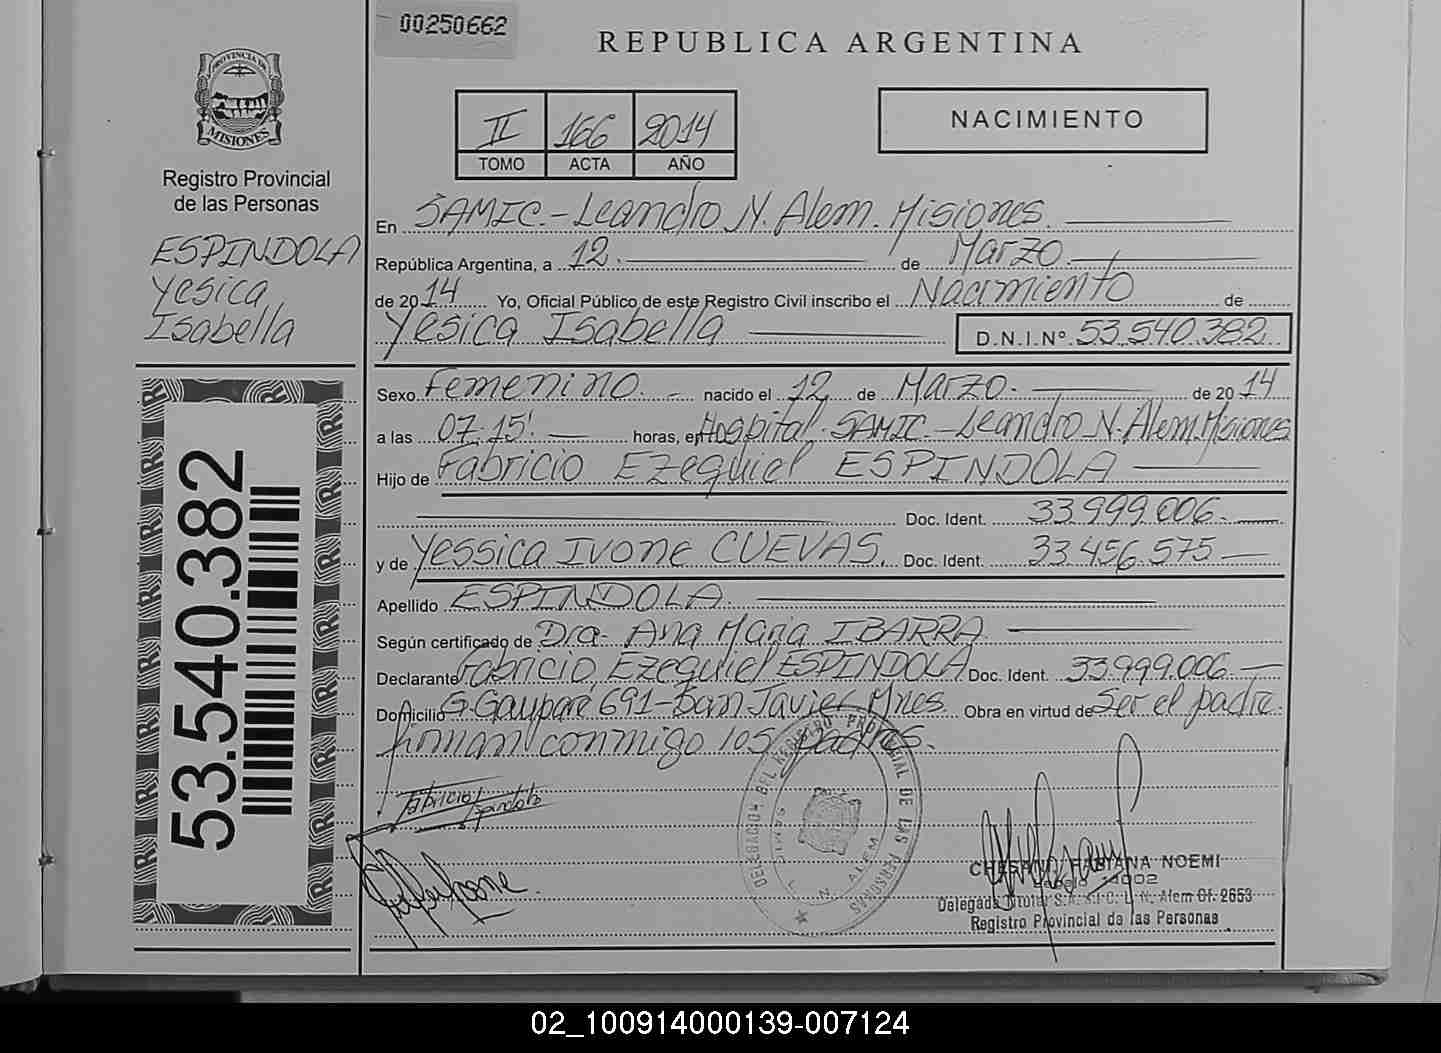 00250662
REPUBLICA ARGENTINA
PROVINCIA DE
MISIONES
II 166 2014
TOMO ACTA AÑO
NACIMIENTO
Registro Provincial
de las Personas
ESPINDOLA
Yesica
Isabella
En SAMIC.-Leandro N. Alem. Misiones.
República Argentina, a 12. de Marzo.
de 2014 Yo, Oficial Público de este Registro Civil inscribo el Nacimiento de
Yesica Isabella D.N.I.Nº 53.540.382.
Sexo Femenino. nacido el 12 de Marzo. de 2014
a las 07.15'. horas, en Hospital SAMIC - Leandro N. Alem. Misiones
Hijo de Fabricio Ezequiel ESPINDOLA
Doc. Ident. 33.999.006.
y de Yessica Ivone CUEVAS. Doc. Ident. 33.456.575
Apellido ESPINDOLA
Según certificado de Dra. Ana Maria IBARRA
Declarante Fabricio Ezequiel ESPINDOLA Doc. Ident. 33.999.006.
Domicilio 691- Javier Mnes Obra en virtud de Ser el padre.
firman conmigo los padres.
53.540.382
DELEGACION DEL REGISTRO PROVINCIAL DE LAS PERSONAS
L. N. ALEM
Fabricio Espindola
FABIANA NOEMI
Delegada Titular L. N. Alem Of. 2653
Registro Provincial de las Personas
02_100914000139-007124